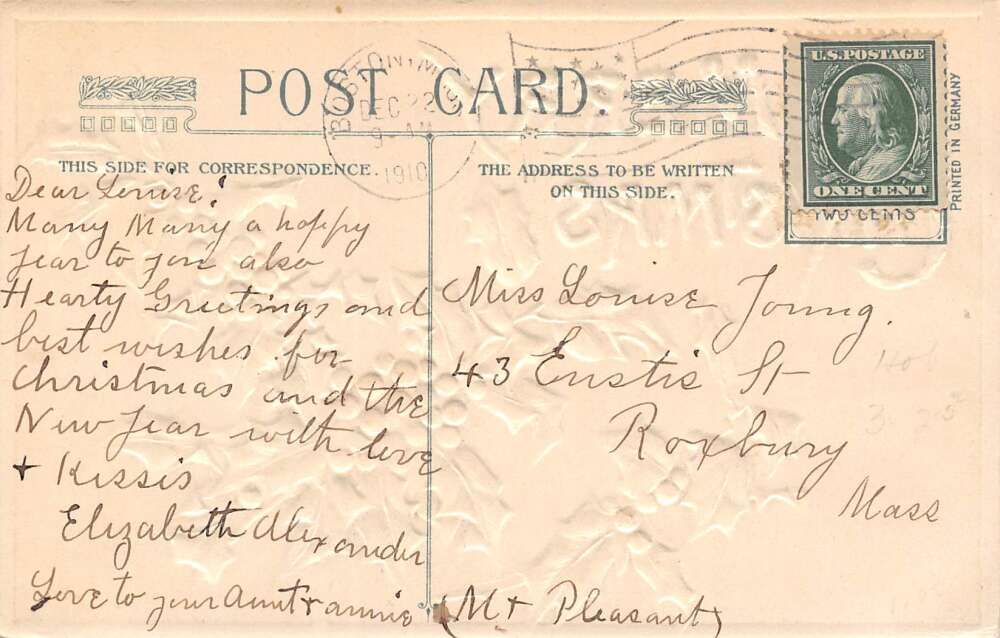 POST CARD.
BOSTON, MASS.
DEC 22
9 - AM
1910
U.S. POSTAGE
ONE CENT
TWO CENTS
PRINTED IN GERMANY
THIS SIDE FOR CORRESPONDENCE.
THE ADDRESS TO BE WRITTEN
ON THIS SIDE.
Dear Louise!
Many Many a happy
year to you also
Hearty Greetings and
best wishes for
Christmas and the
New Year with love
+ Kissis
Elizabeth Alexander
Love to your Aunt + annie
Miss Louise Young.
43 Eustis St
Roxbury
Mass
(Mt Pleasant)